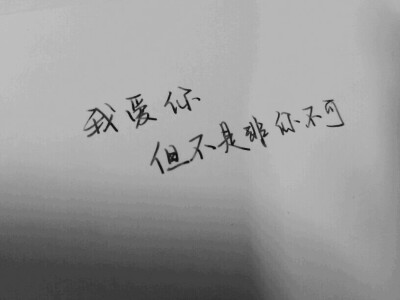 我爱你
但不是非你不可